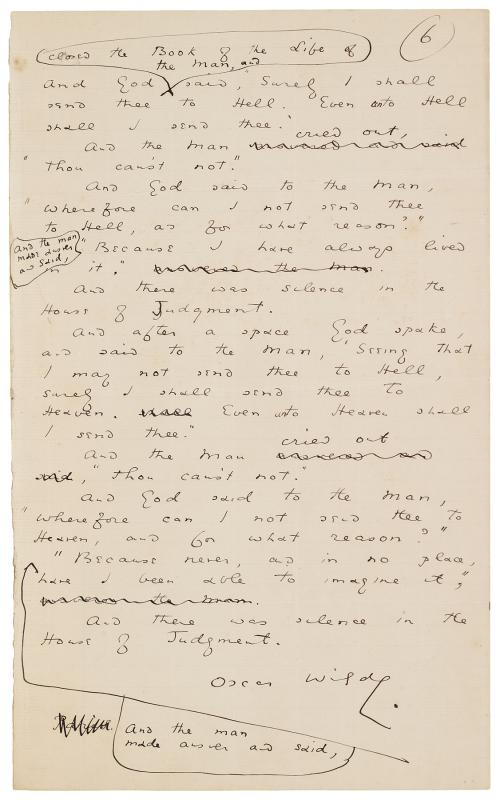 6
closed the Book of the Life of
the Man, and
And God said, "Surely I shall
send thee to Hell. Even unto Hell
shall I send thee."
cried out,
And the Man
"Thou can'st not."
And God said to the Man,
"Wherefore can I not send thee
to Hell, and for what reason?"
And the man
made answer
and said,
"Because I have always lived
in it." answered the Man.
And there was silence in the
House of Judgment.
And after a space God spake,
and said to the Man, "Seeing that
I may not send thee to Hell,
surely I shall send thee to
Heaven. Even unto Heaven shall
I send thee."
cried out
And the Man
said, "Thou can'st not."
And God said to the Man,
"Wherefore can I not send thee to
Heaven, and for what reason?"
"Because never, and in no place,
have I been able to imagine it",
answered the Man.
And there was silence in the
House of Judgment.
Oscar Wilde.
And the man
made answer and said,